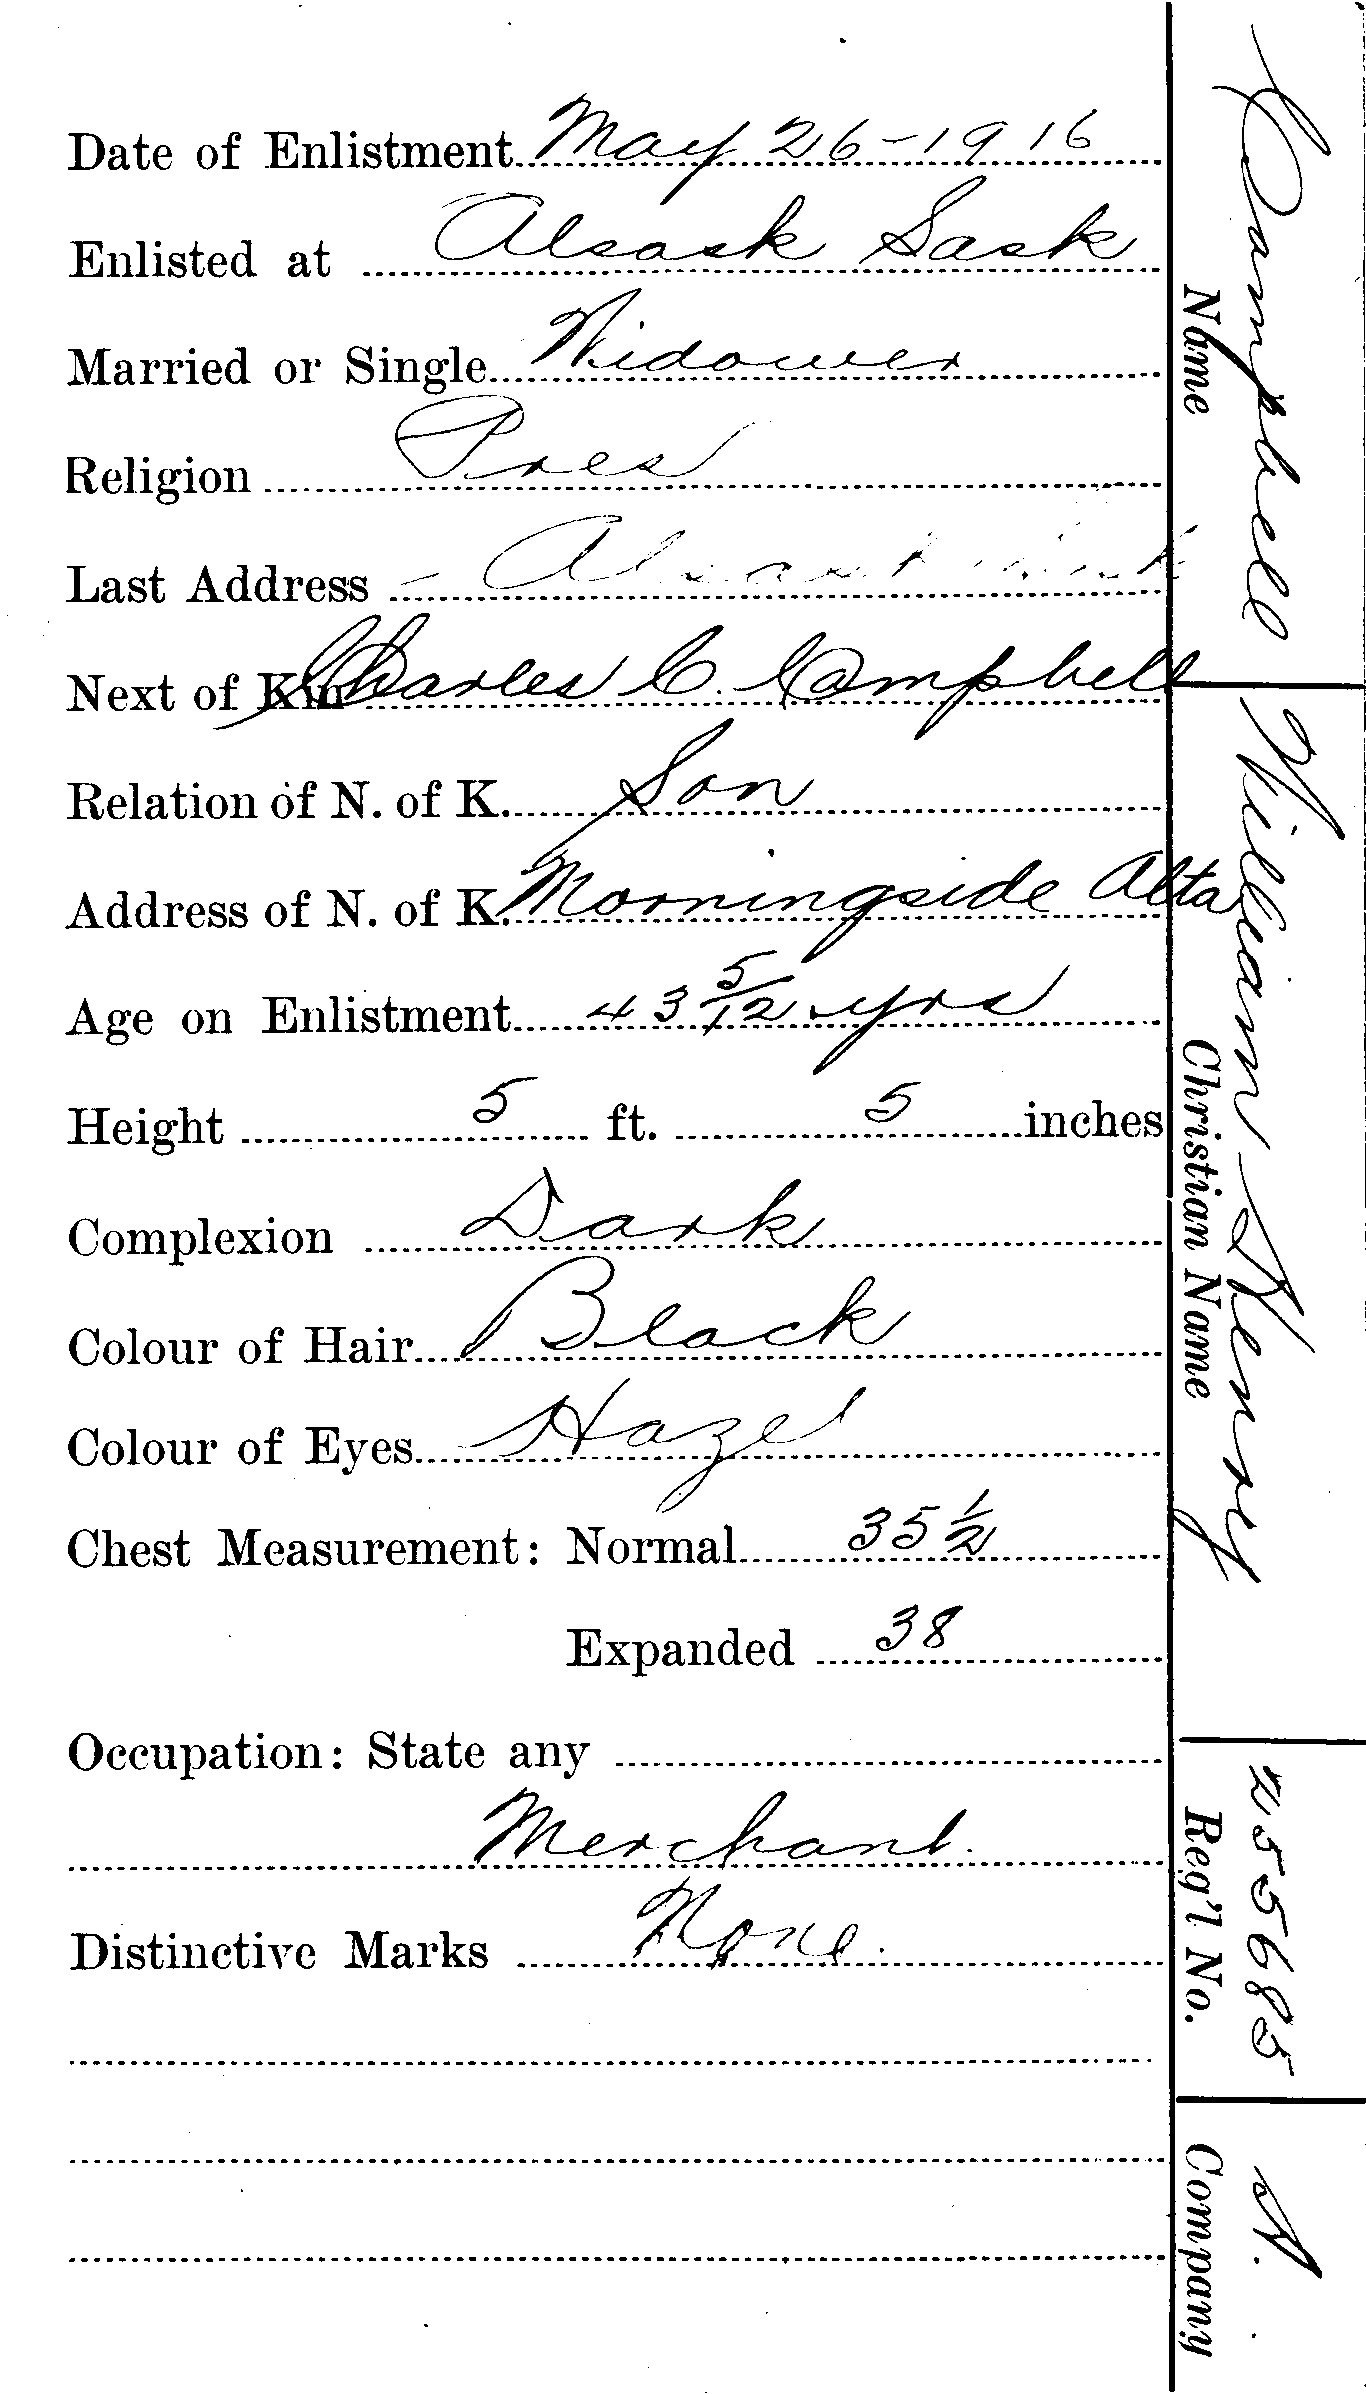 Date of Enlistment May 26-1916
Enlisted at Alsask Sask
Married or Single Widower
Religion Pres
Last Address - Alsask Sask
Next of Kin Charles C. Campbell
Relation of N. of K. Son
Address of N. of K. Morningside Alta
Age on Enlistment 43 5/12 yrs
Height 5 ft. 5 inches
Complexion Dark
Colour of Hair Black
Colour of Eyes Hazel
Chest Measurement: Normal 35 1/2
Expanded 38
Occupation: State any
Merchant.
Distinctive Marks None.
Campbell
Name
William Henry
Christian Name
255685
Reg'l No.
A.
Company